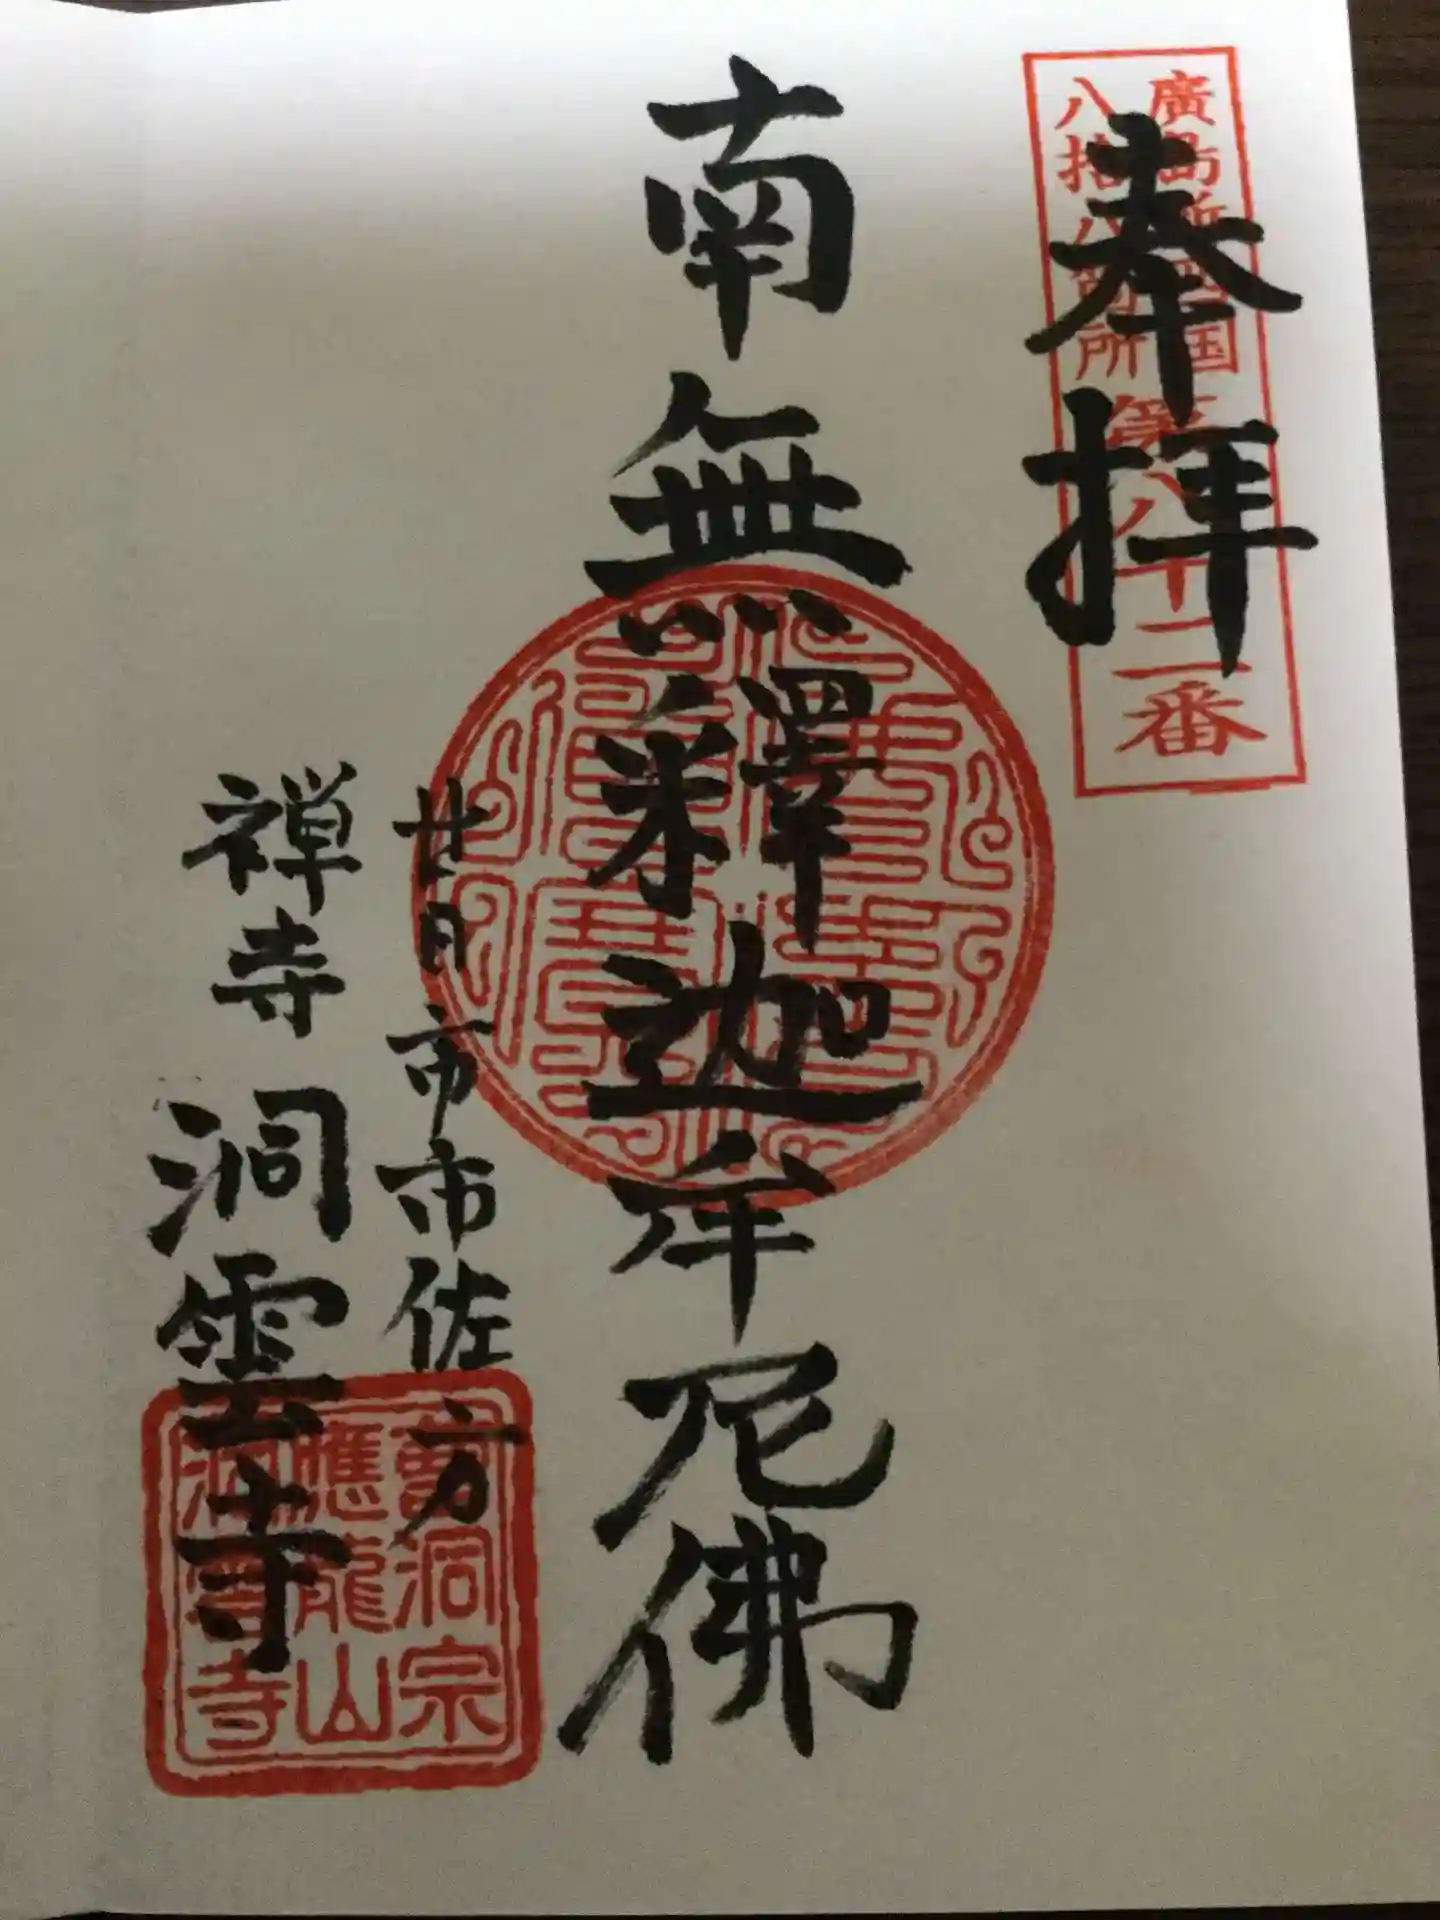 奉拝
廣島新四国
八拾八箇所
第八十二番
南無釋迦牟尼佛
廿日市市佐方
禅寺 洞雲寺
曹洞宗
應龍山
洞雲寺